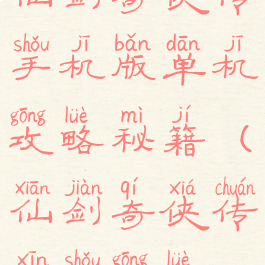 仙剑奇侠传
shǒu jī bǎn dān jī
手机版单机
gōng lüè mì jí
攻略秘籍(
xiān jiàn qí xiá chuán
仙剑奇侠传
xīn shǒu gōng lüè